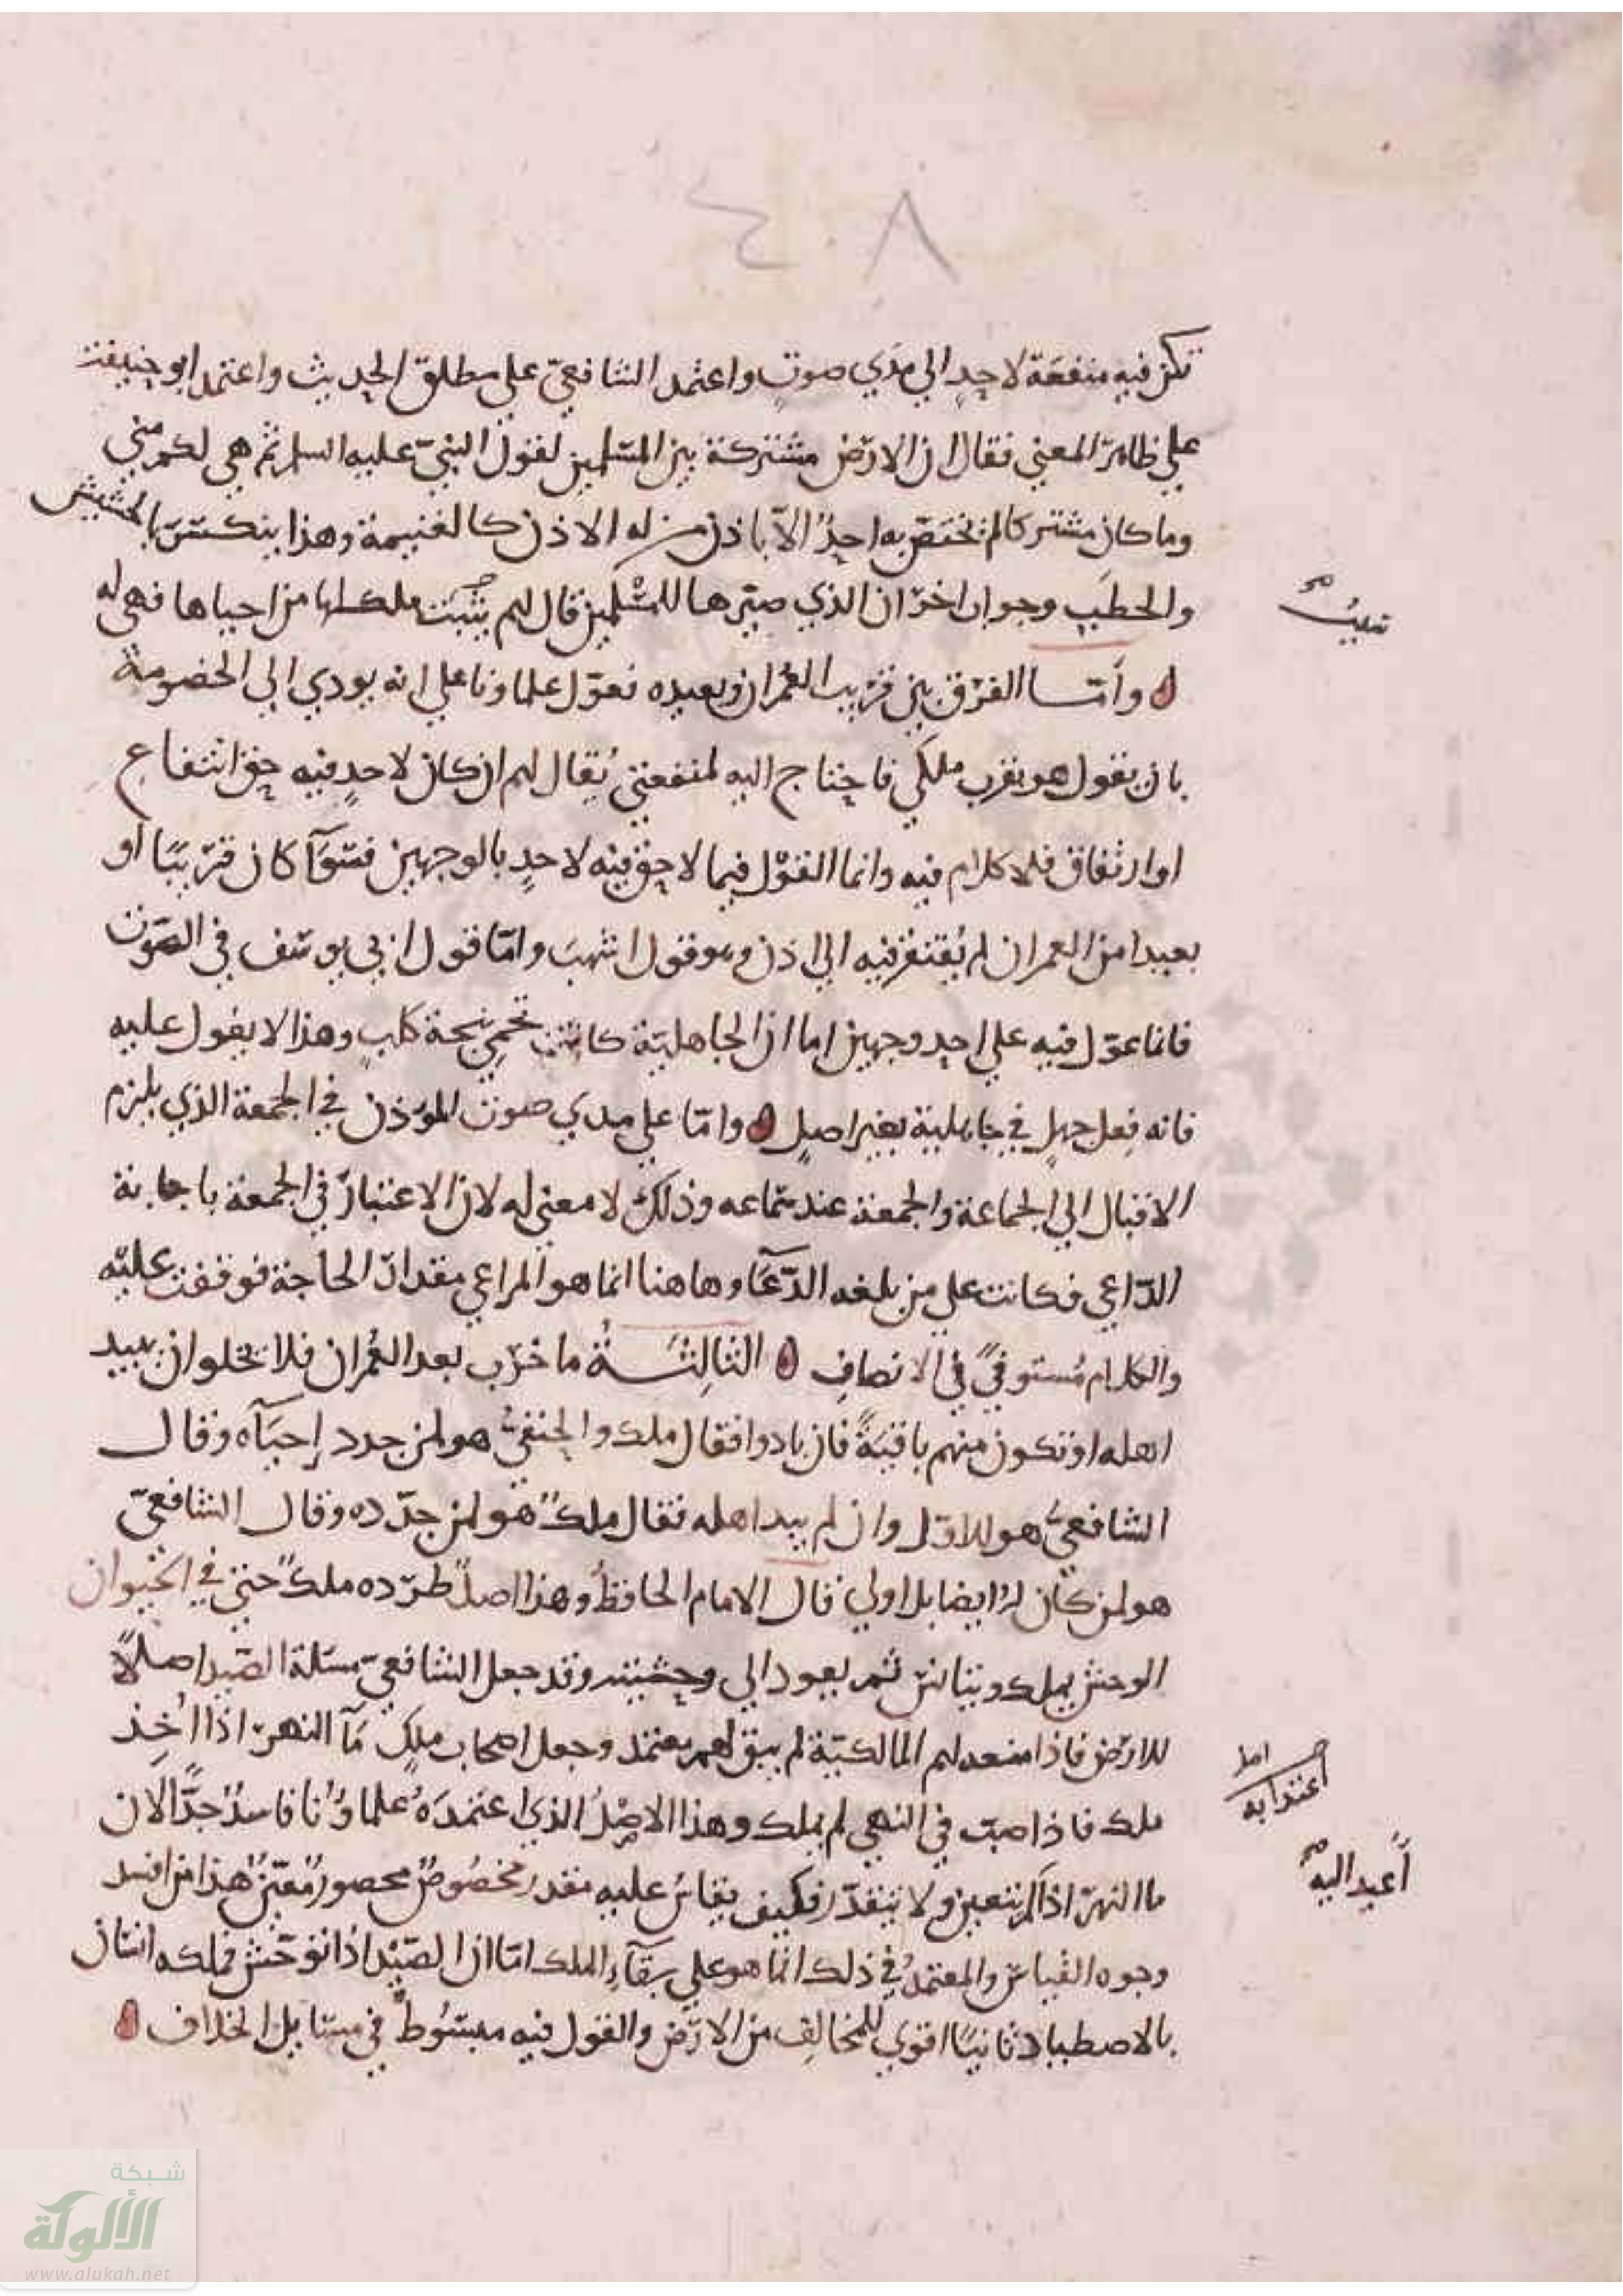 ٤٠٨
تكن فيه منفعة لاحد الي مدي صوت واعتمد الشافعيّ علي مطلق الحديث واعتمد ابو حنيفة
علي ظاهر المعني فقال ان الارض مشتركة بين المسلمين لقول النبيّ عليه السلم ثم هي لكم مني
وما كان مشتركا لم يختصّ به احدٌ الاّ باذن من له الاذن كالغنيمة وهذا ينكسر بالحشيش
والحطب وجواب اخر ان الذي صيّرها للمسلمين قال لهم يثبت ملكها من احياها فهي له
وأمّا الفرق بين قريب العمران وبعيده فعوّل علماونا علي انه يودي الي الخصومة
بان يقول هو بقرب ملكي فاحتاج اليه لمنفعتي يُقال لهم ان كان لاحدٍ فيه حق انتفاع
او ارتفاق فلا كلام فيه وانما القول فيما لا حق فيه لاحدٍ بالوجهين فسوآ كان قريبًا او
بعيدا من العمران لم يُفتقر فيه الي اذن وهو قول اشهب وامّا قول ابي يوسف في الصوت
فانما عوّل فيه علي احد وجهين اما ان الجاهليّة كانت تحمي بنبحة كلب وهذا لا يعول عليه
فانه فعل جهلٍ في جاهلية بغير اصلٍ وامّا علي مدي صوت المؤذن في الجمعة الذي يلزم
الاقبال الي الجماعة والجمعة عند سماعه وذلك لا معني له لان الاعتبار في الجمعة باجابة
الدّاعي فكانت علي من بلغه الدّعآ وهاهنا انما هو المراعي مقدار الحاجة فوقفت عليه
والكلام مُستوفيً في الانصاف الثالثة ما خرب بعد العُمران فلا يخلوا ان يبيد
اهله او تكون منهم باقيةً فان بادوا فقال ملك والحنفيُّ هو لمن جدد إحيآه وقال
الشافعيُّ هو للاوّل وان لم يبد اهله فقال ملكٌ هو لمن جدّده وقال الشافعيّ
هو لمن كان له ايضا بل اولي قال الامام الحافظُ وهذا اصلٌ طرّده ملكٌ حتي في الحيوان
الوحش يملك ويتانس ثم يعود الي وحشيته وقد جعل الشافعيّ مسئلة الصيد اصلاً
للارض فاذا منعه لهم المالكيّة لم يبق لهم معتمد وجعل اصحاب ملكٍ مآ النهر اذا اُخِذ
ملك فاذا صبّ في النهر لم يملك وهذا الاصلُ الذي اعتمدَهُ علماوُنا فاسدٌ جدًّا لان
ما النهر اذا لم يتعين ولا يتقدّر فكيف يقاسُ عليه مقدر مخصُوصٌ محصورٌ مُعيّنٌ هذا من افسد
وجوه القياس والمعتمدُ في ذلك انما هو علي بقآءِ الملك امّا ان الصّيْد اذا توحّش فملكه انسان
بالاصطياد ثانيًا اقوي للمخالف من الارض والقول فيه مبسُوطٌ في مسايل الخلاف
اعتدا به
أعيد اليه
شبكة
الألوكة
www.alukah.net